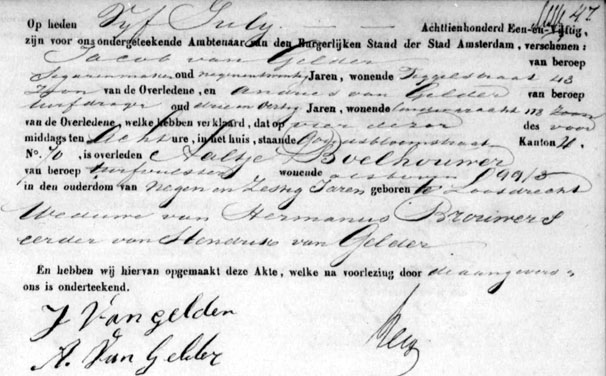 47
Op heden Vyf July Achttienhonderd Een-en-Vijftig,
zijn voor ons ondergeteekende Ambtenaar van den Burgerlijken Stand der Stad Amsterdam, verschenen:
Jacob van Gelder van beroep
Segarenmaker oud negenentwintig Jaren, wonende 43
Zoon van de Overledene, en Andries van Gelder van beroep
turfdrager oud drieendertig Jaren, wonende 118 Zoon
van de Overledene, welke hebben verklaard, dat op vier dezer des voor
middags ten Acht ure, in het huis, staande Goudsbloemstraat Kanton 2.
No. 70, is overleden Aaltje Boelhouwer
van beroep wonende alsboven
in den ouderdom van Negen en Zestig Jaren geboren te Loosdrecht
Weduwe van Hermanus Brouwer &
eerder van Hendrik van Gelder
En hebben wij hiervan opgemaakt deze Akte, welke na voorlezing door de aangevers
ons is onderteekend.
J Van gelder
A. Van Gelder